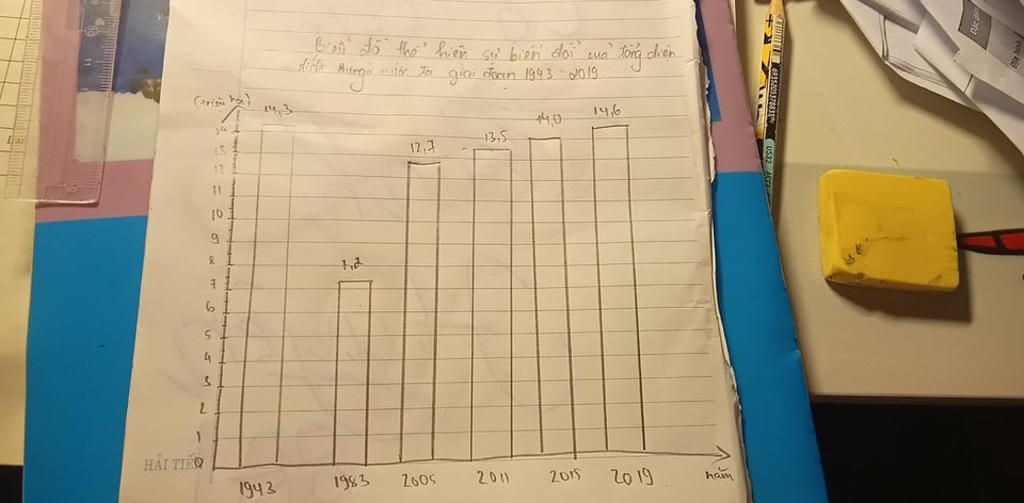 Biểu đồ thể hiện sự biến đổi của tổng diện
tích rừng nước ta giai đoạn 1943 - 2019
(triệu ha)
14,3
7,2
12,7
13,5
14,0
14,6
14
13
12
11
10
9
8
7
6
5
4
3
2
1
0
HẢI TIẾ
1943
1983
2005
2011
2015
2019
năm